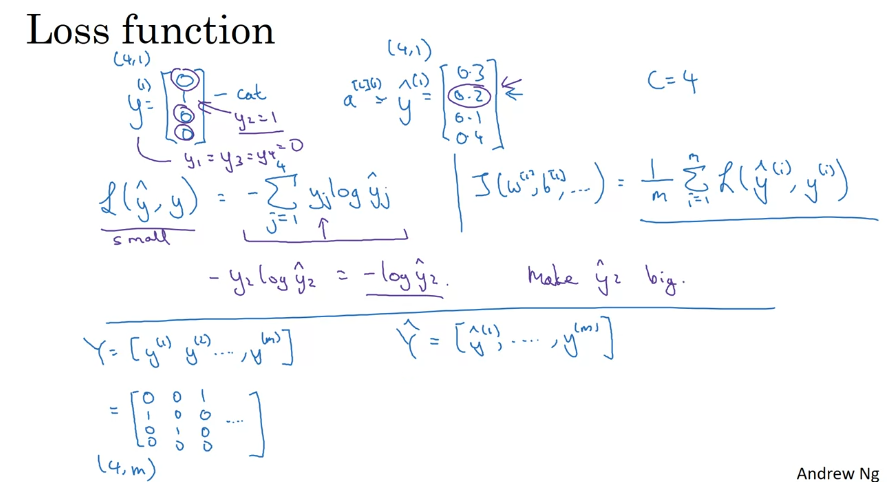 Loss function
(4,1)
y^(i) = [0 1 0 0] - cat
y₂=1
y₁ = y₃ = y₄ = 0
(4,1)
a^[L](i) = ŷ^(i) = [0.3 0.2 0.1 0.4]
C=4
L(ŷ, y) = - Σ_{j=1}^{4} y_j log ŷ_j
small
J(w^[1], b^[1], ...) = 1/m Σ_{i=1}^{m} L(ŷ^(i), y^(i))
- y₂ log ŷ₂ = - log ŷ₂. Make ŷ₂ big.
Y = [y^(1) y^(2) ...., y^(m)]
Ŷ = [ŷ^(1), ...., y^(m)]
= [0 0 1
1 0 0 ....
0 1 0
0 0 0]
(4,m)
Andrew Ng